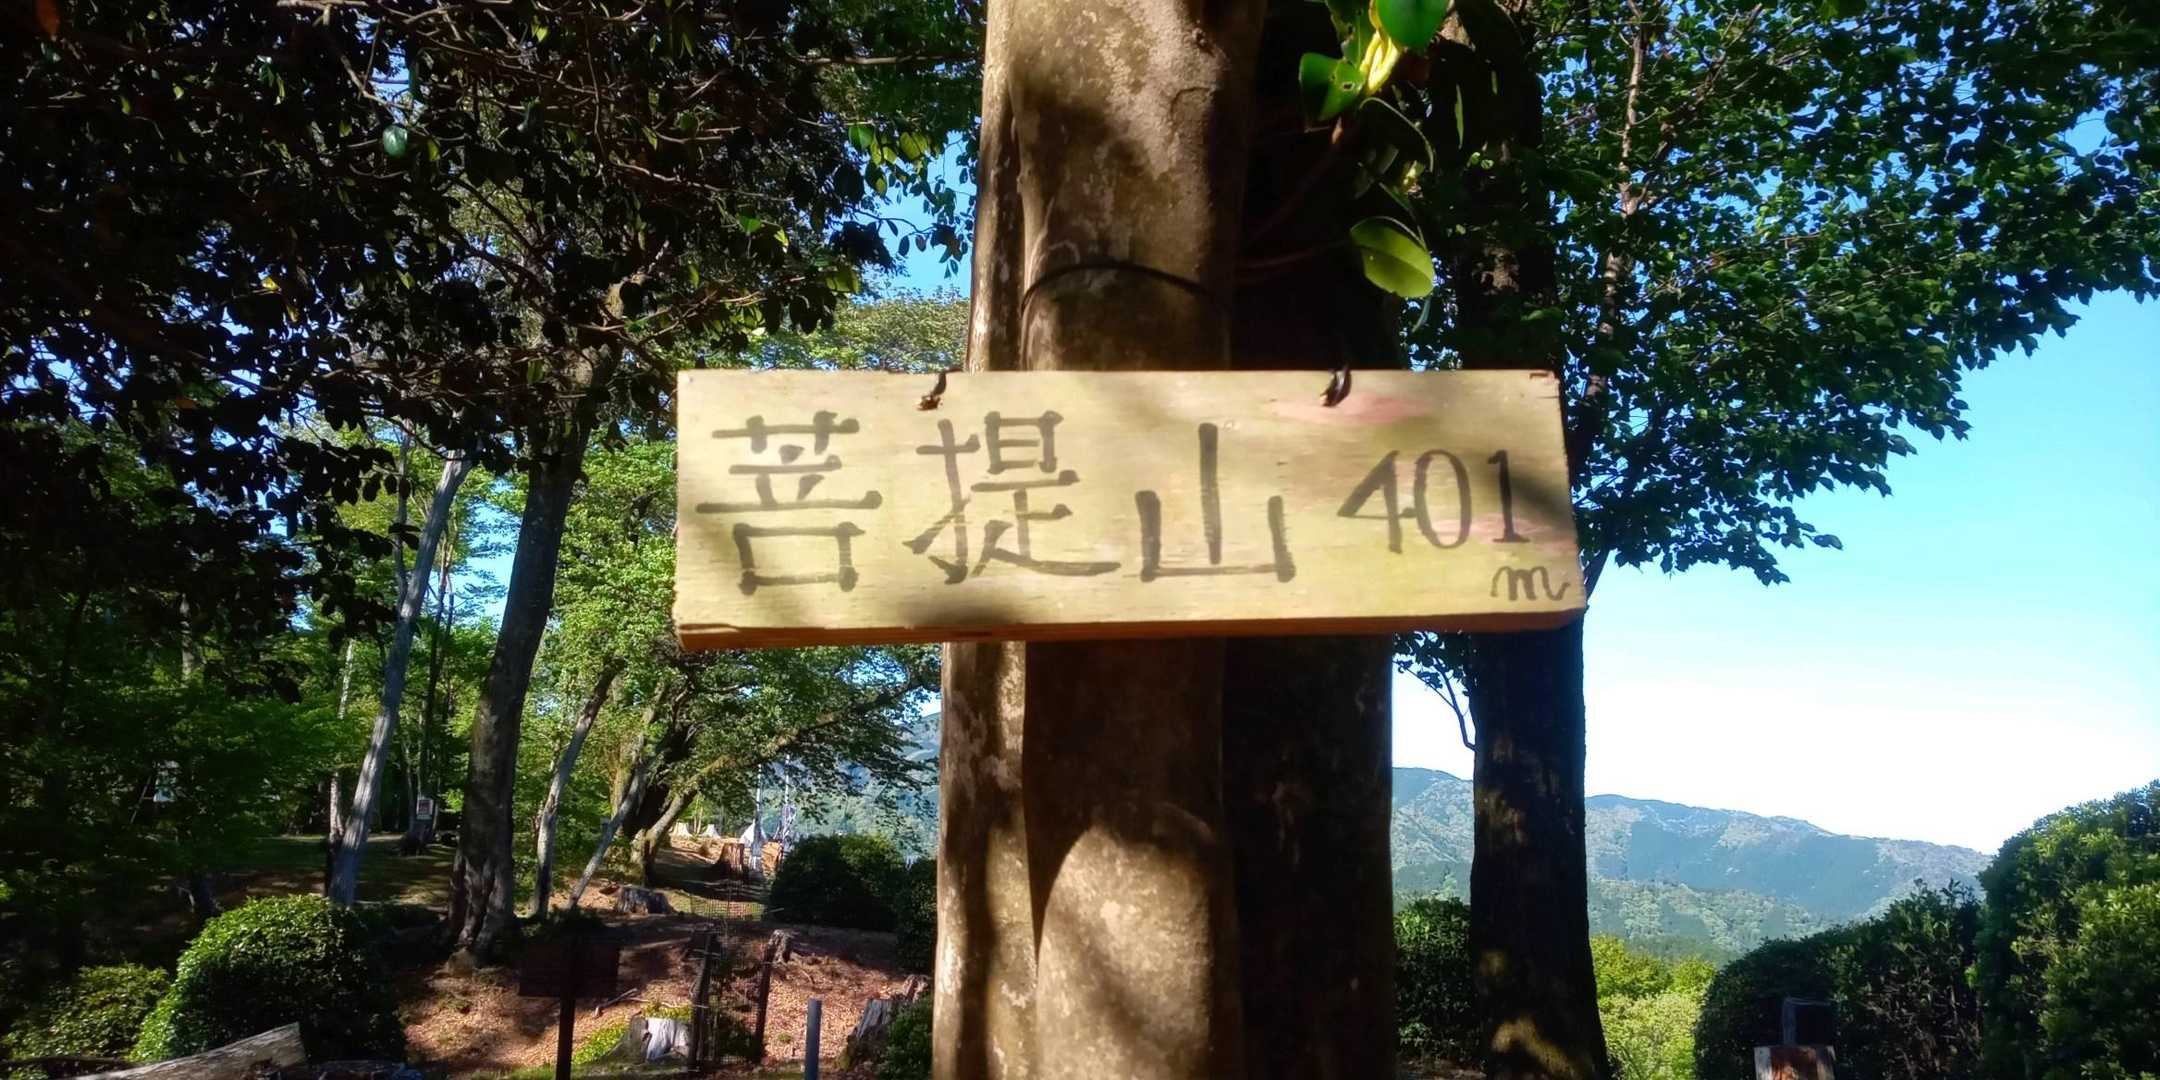 菩提山 401m